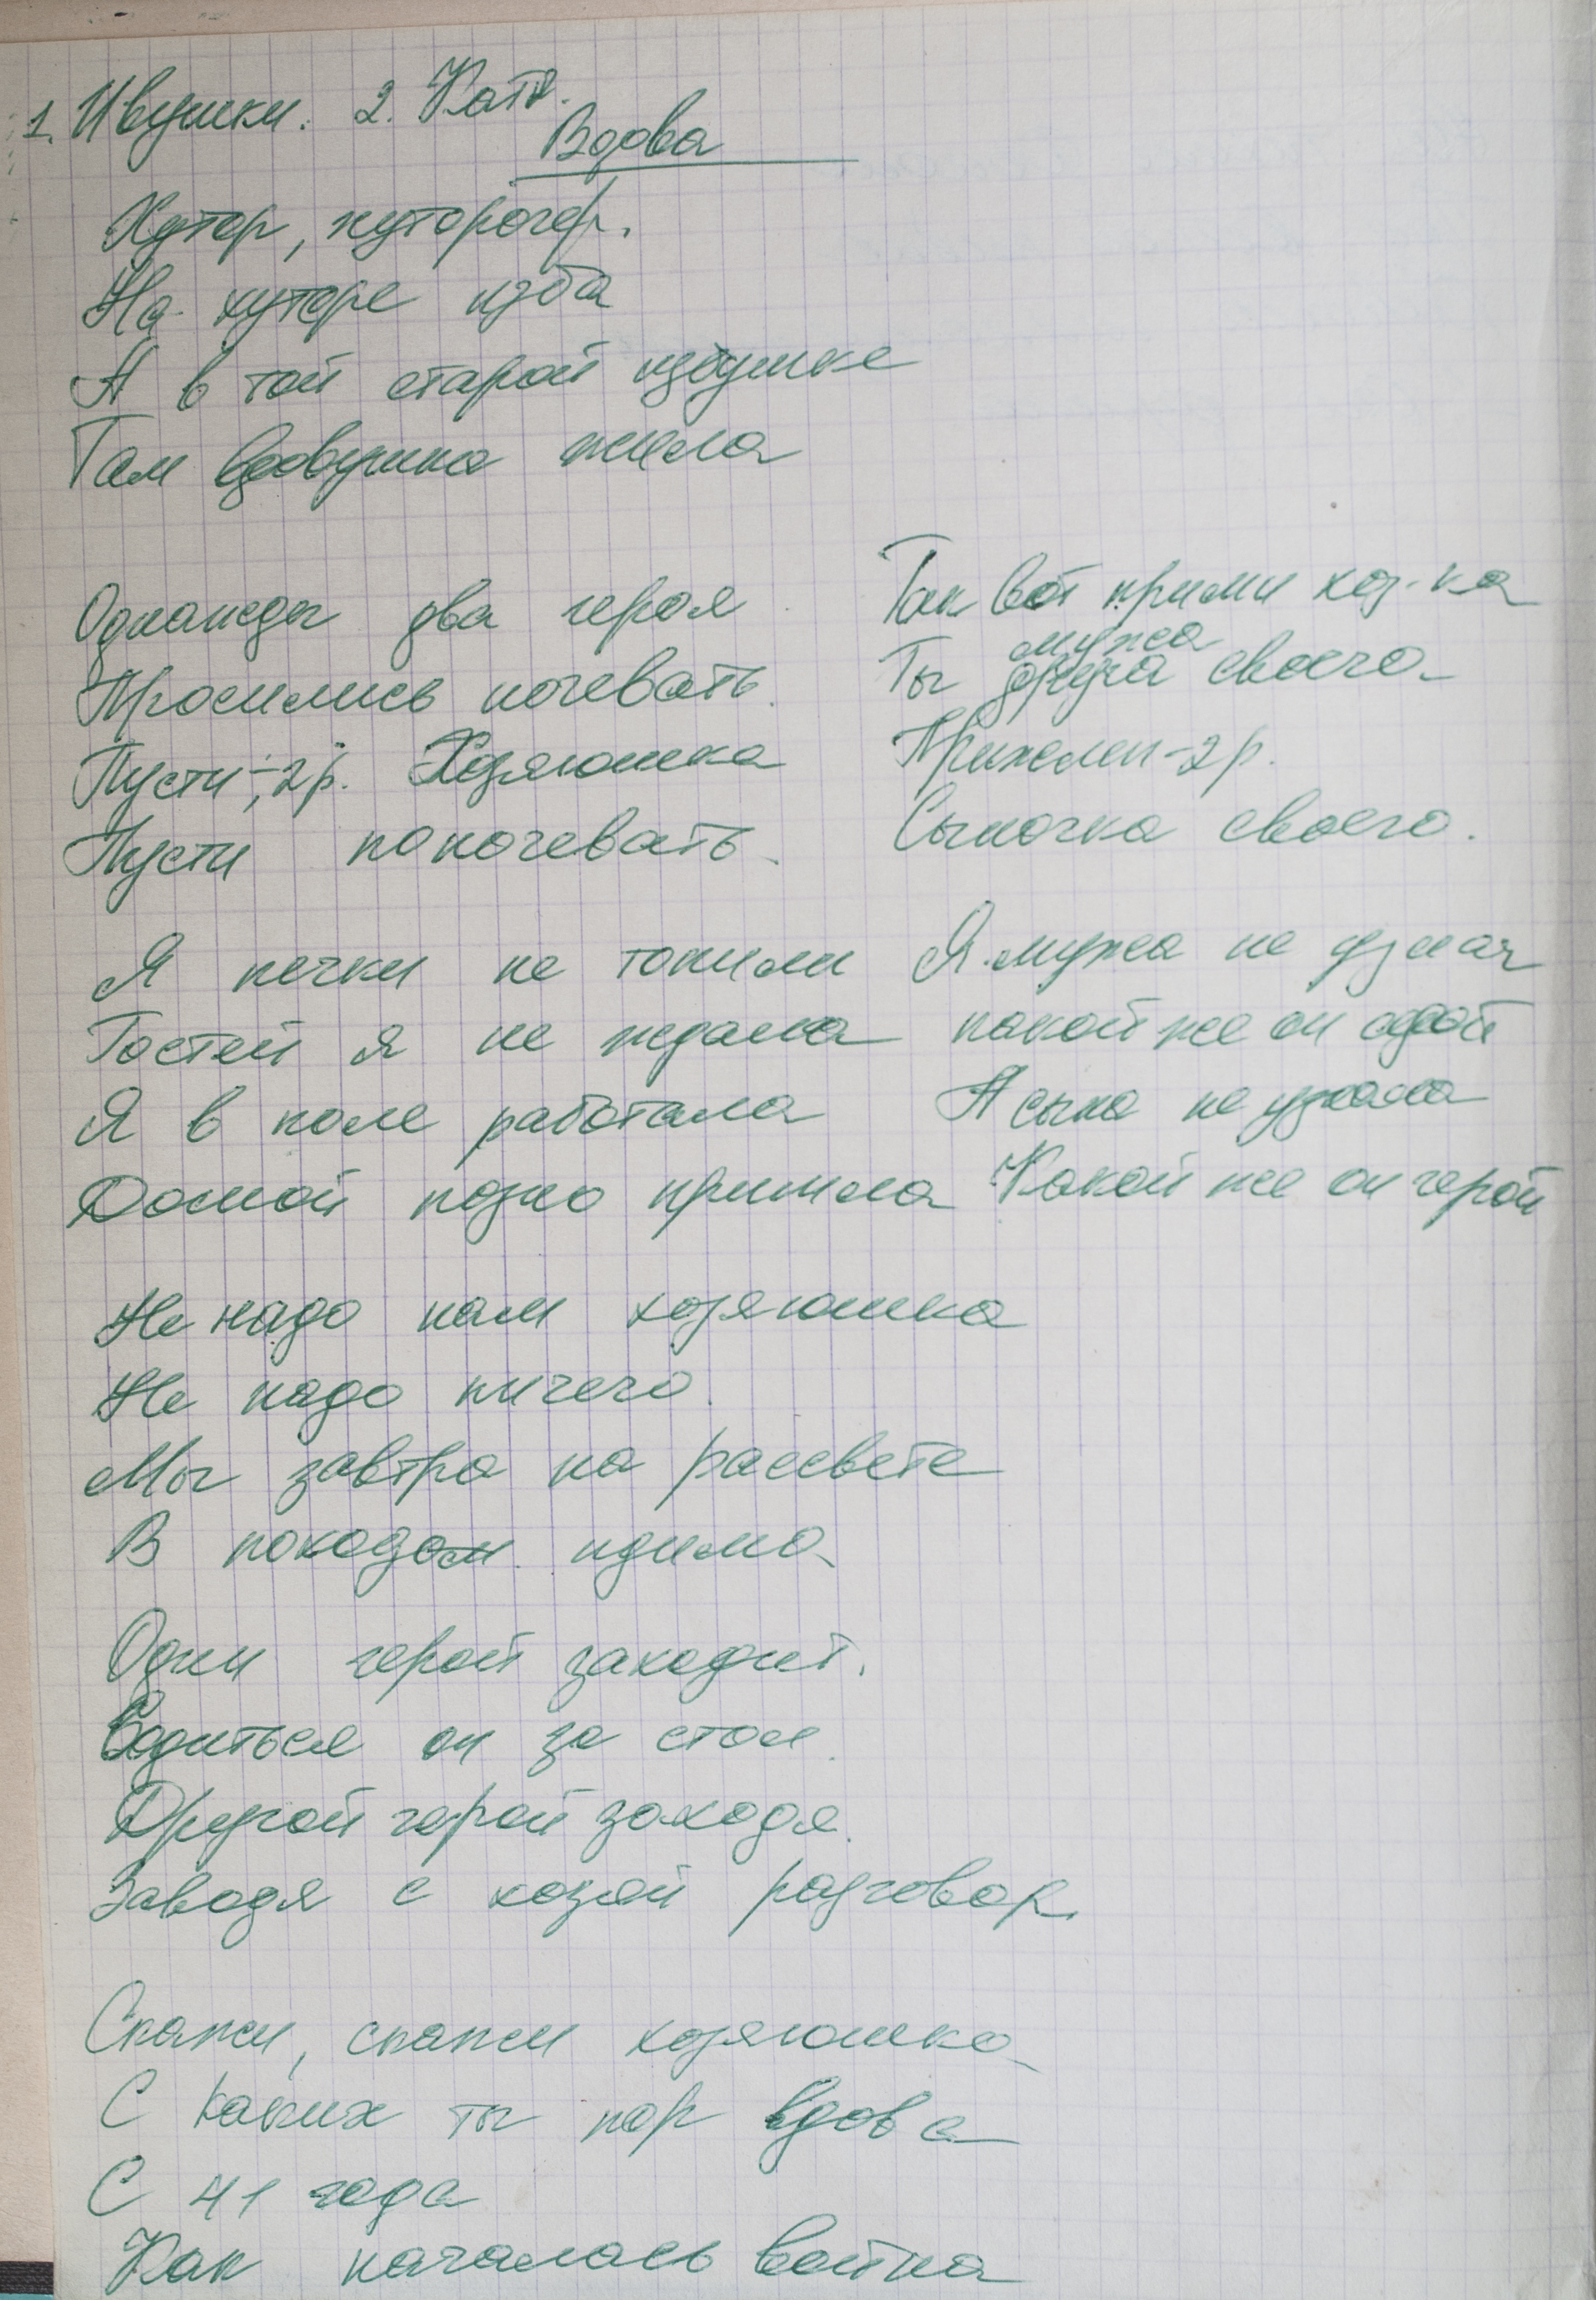 1. Ивушки. 2. Катя.
Вдова
Хутор, хуторочек.
На хуторе изба
А в той старой избушке
Там вдовушка жила
Однажды два героя
Просились ночевать.
Пусти-, 2 р. Хозяюшка
Пусти поночевать.
Я печки не топили
Гостей я не ждала
Я в поле работала
Домой позно пришла
Не надо нам хозяюшка
Не надо ничего.
Мы завтра на рассвете
В походом идимо
Один герой заходит.
Садиться он за стол.
Другой герой заходя.
Заводя с хозяй разговор.
Скажи, скажи хозяюшка
С каких ты пор вдова
С 41 года
Как началась война
Так вот прими хоз-ка
мужа
Ты друга своего
Прижели-2 р.
Сыночка своего.
Я мужа не узнал
какой же он седой
А сына не узнала
Какой же он герой